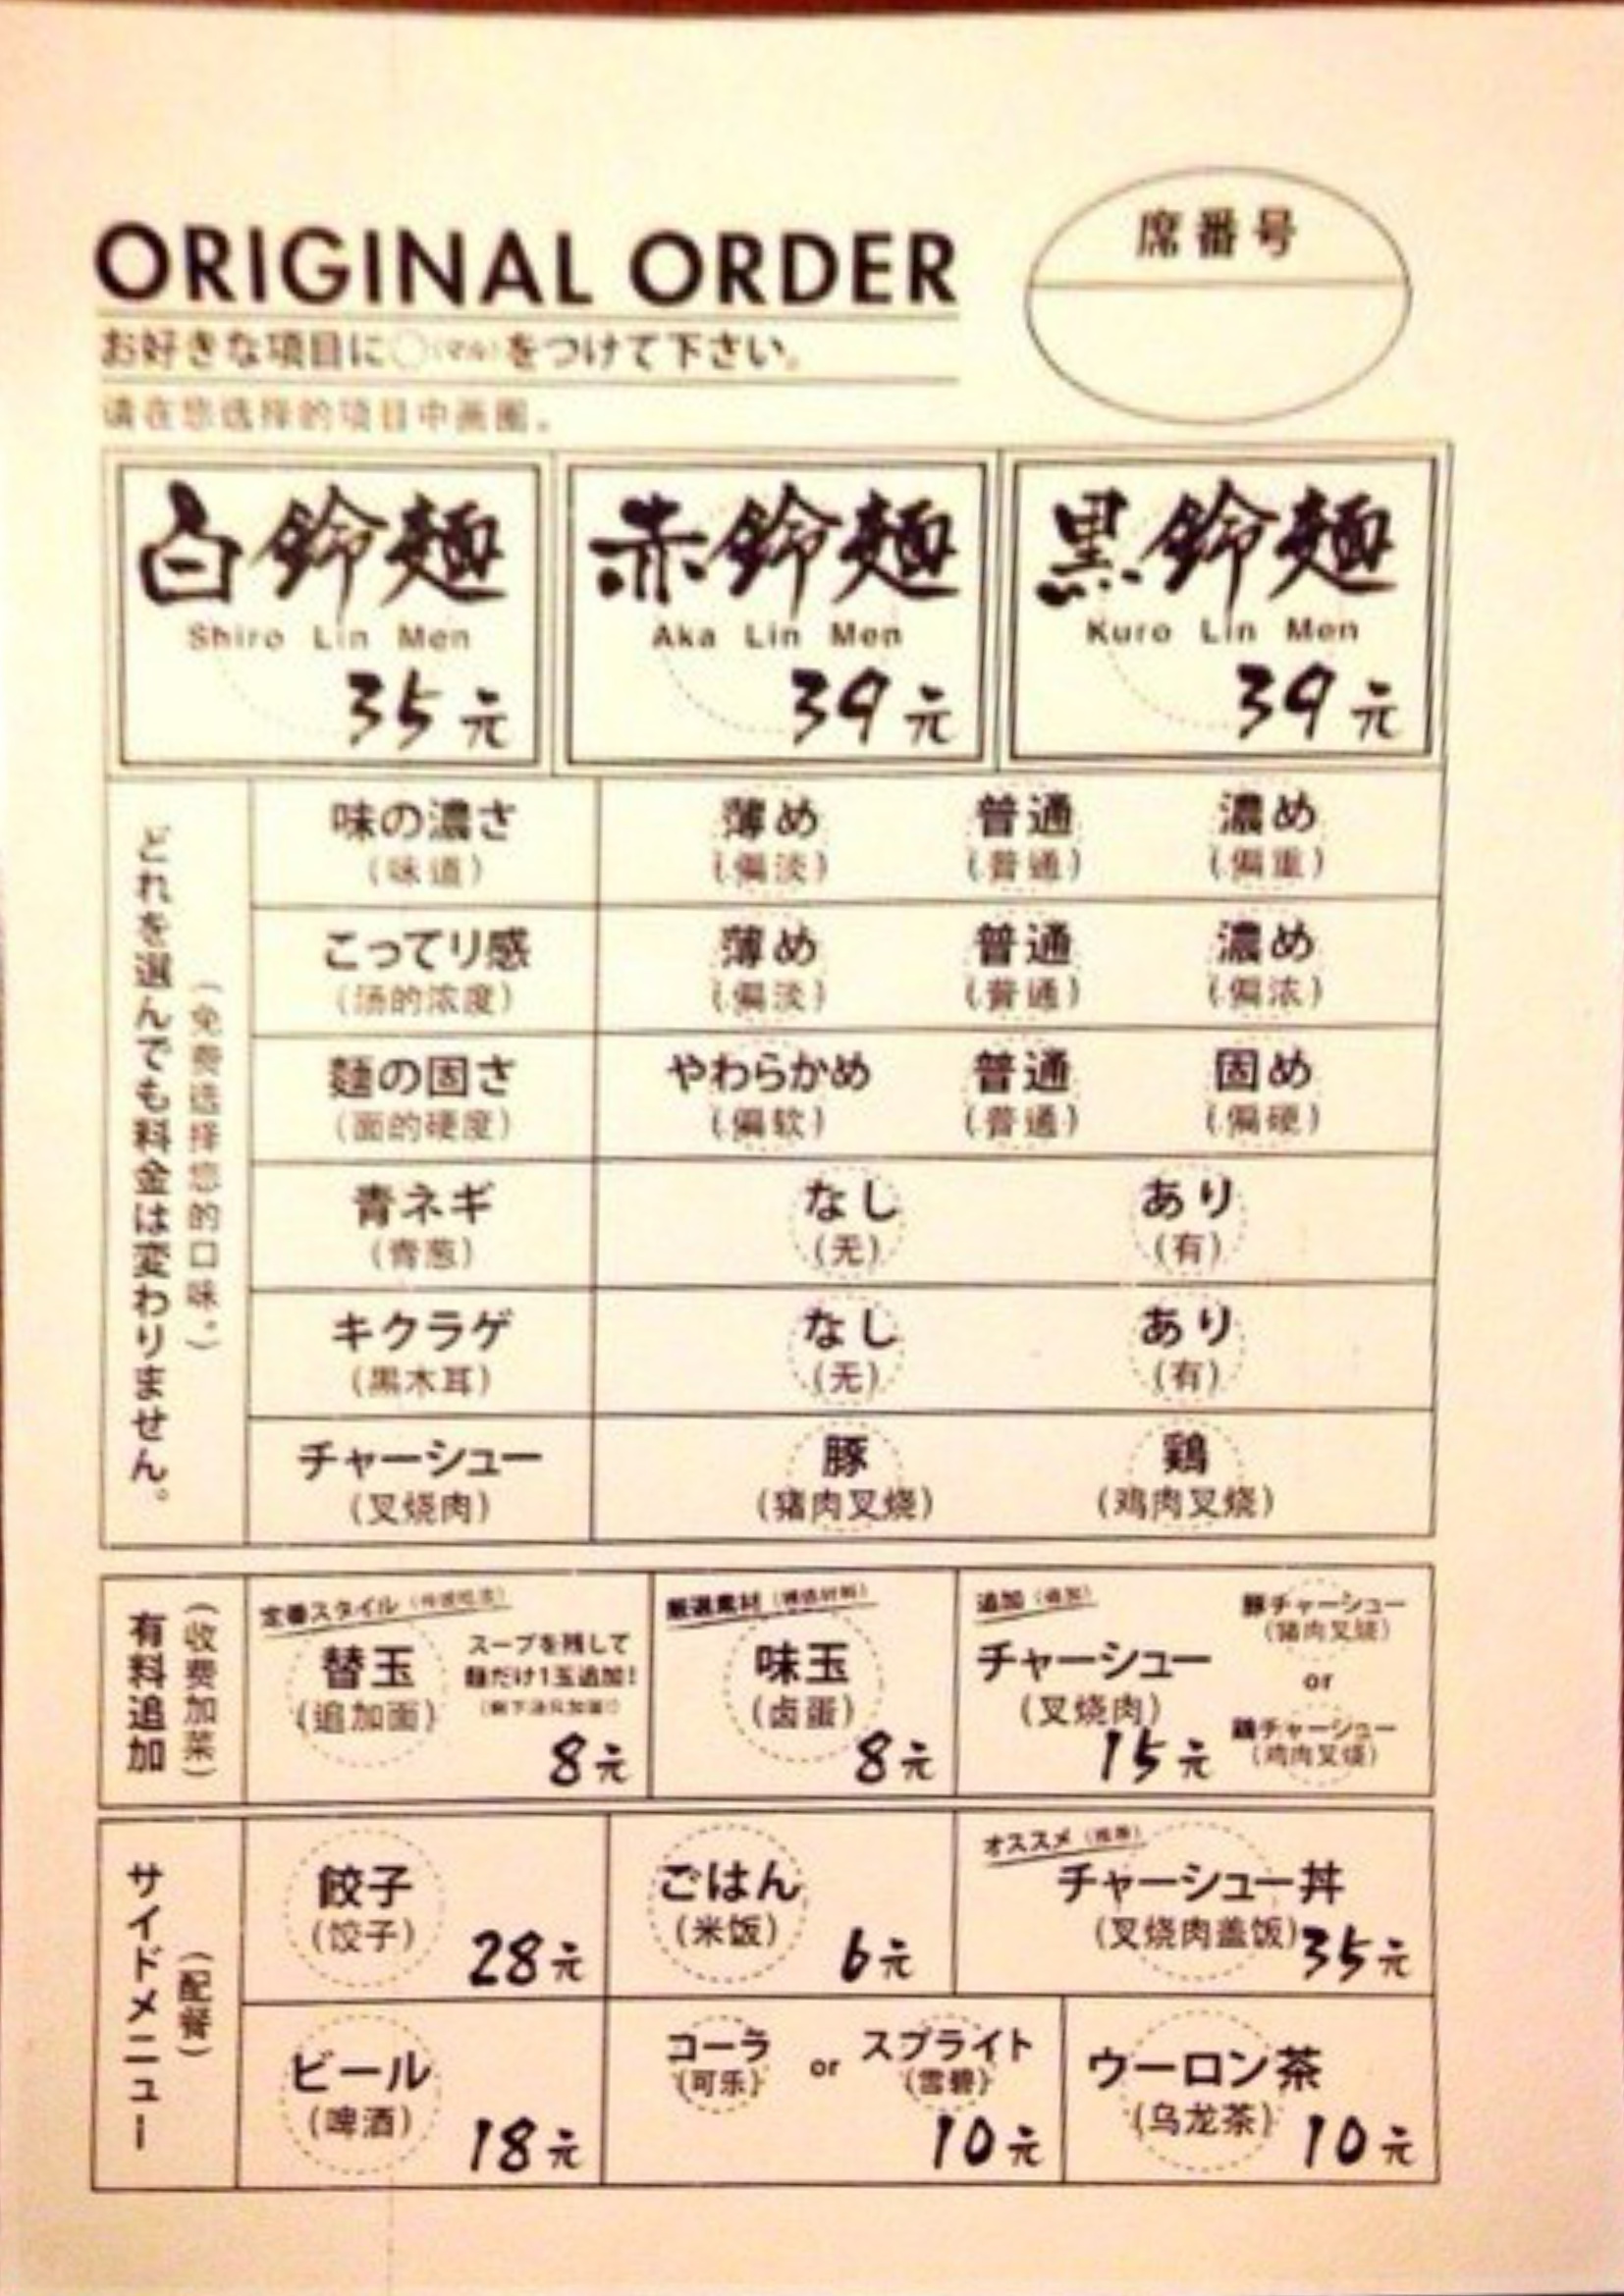 席番号
ORIGINAL ORDER
お好きな項目に〇(マル)をつけて下さい。
请在您选择的项目中画圈。
白鈴麺
Shiro Lin Men
35元
赤鈴麺
Aka Lin Men
39元
黒鈴麺
Kuro Lin Men
39元
どれを選んでも料金は変わりません。
(免费选择您的口味。)
味の濃さ 薄め 普通 濃め
(味道) (偏淡) (普通) (偏重)
こってり感 薄め 普通 濃め
(汤的浓度) (偏淡) (普通) (偏浓)
麺の固さ やわらかめ 普通 固め
(面的硬度) (偏软) (普通) (偏硬)
青ネギ なし あり
(青葱) (无) (有)
キクラゲ なし あり
(黒木耳) (无) (有)
チャーシュー 豚 鶏
(叉烧肉) (猪肉叉烧) (鸡肉叉烧)
有料追加
(收费加菜)
定番スタイル
替玉
(追加面)
スープを残して
麺だけ1玉追加!
8元
厳選素材
味玉
(卤蛋)
8元
追加(追加)
チャーシュー
(叉烧肉)
15元
豚チャーシュー
(猪肉叉烧)
or
鶏チャーシュー
(鸡肉叉烧)
サイドメニュー
(配餐)
餃子
(饺子)
28元
ごはん
(米饭)
6元
オススメ(推荐)
チャーシュー丼
(叉烧肉盖饭)
35元
ビール
(啤酒)
18元
コーラ or スプライト
(可乐) (雪碧)
10元
ウーロン茶
(乌龙茶)
10元